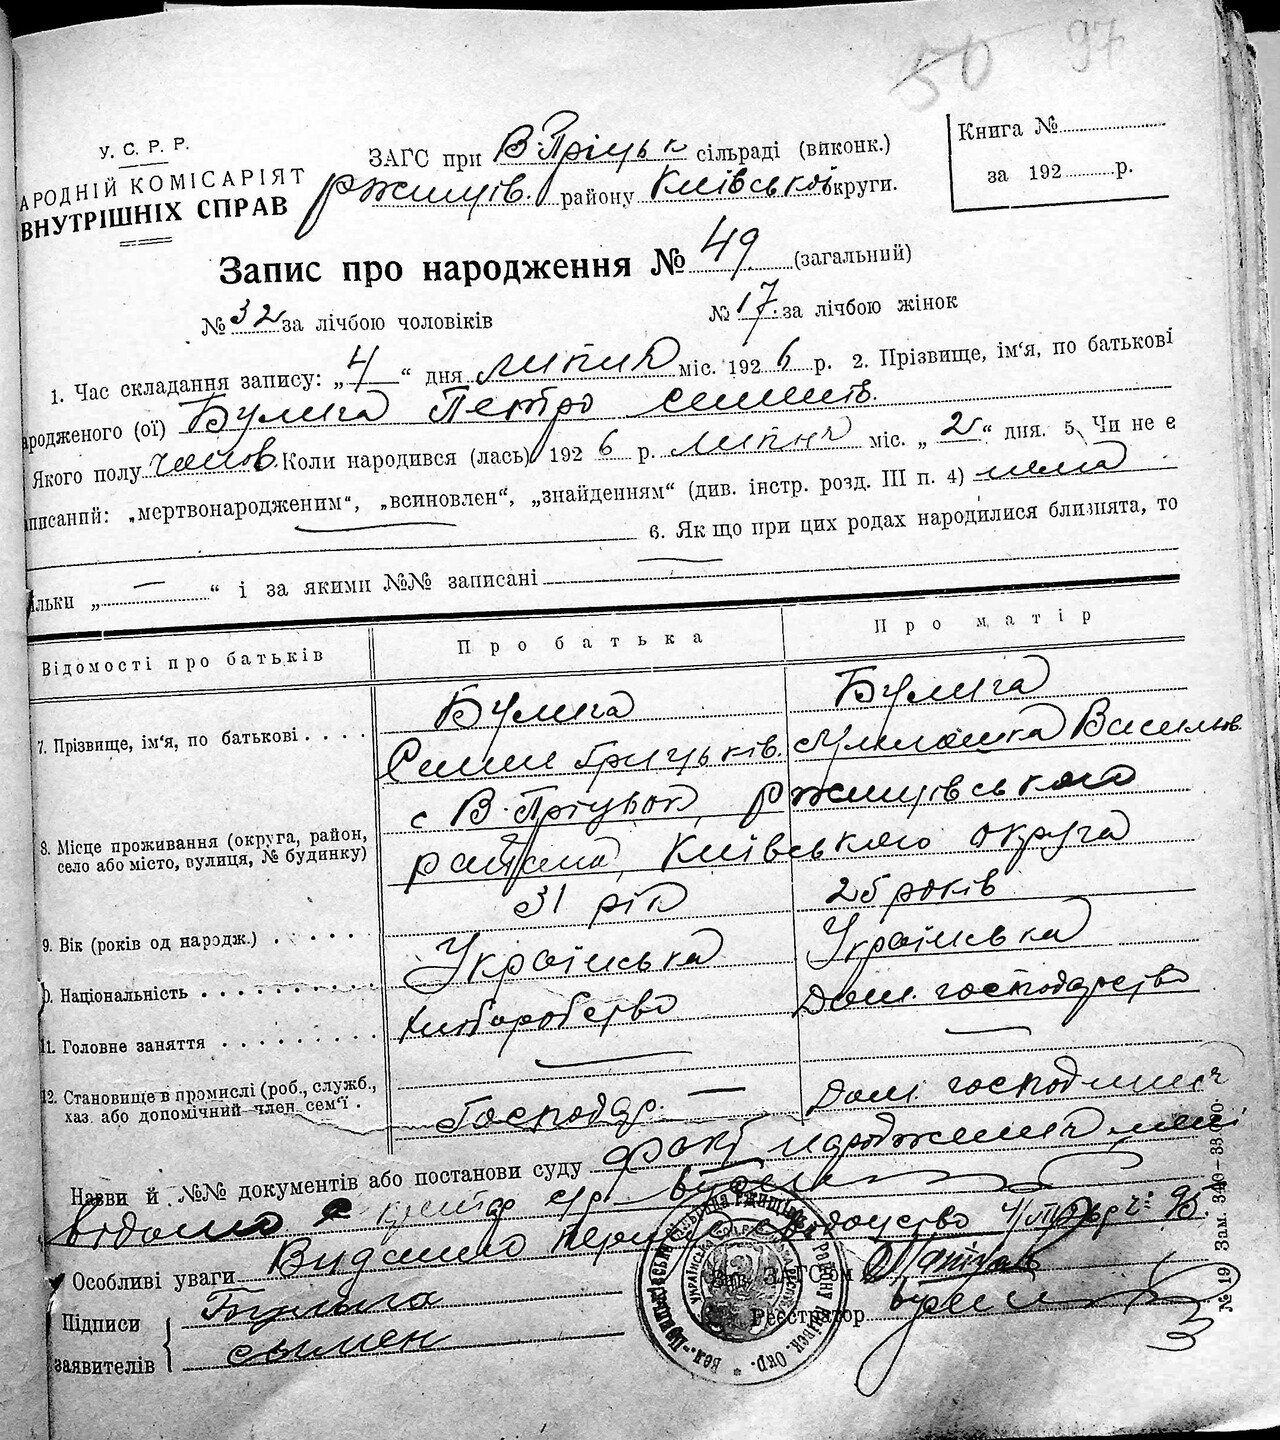 50 97
У. С. Р. Р.
АРОДНІЙ КОМІСАРІЯТ
ВНУТРІШНІХ СПРАВ
ЗАГС при В-Пріцьк сільраді (виконк.)
Ржищів. району Київської округи.
Книга №
за 192 р.
Запис про народження № 49 (загальний)
№ 32 за лічбою чоловіків № 17. за лічбою жінок
1. Час складання запису: „4“ дня липня міс. 1926 р. 2. Прізвище, ім‘я, по батькові
ародженого (ої) Булига Петро Семенів.
Якого полу чолов. Коли народився (лась) 1926 р. липня міс. „2“ дня. 5. Чи не є
аписаний: „мертвонародженим“, „всиновлен“, „знайденням“ (див. інстр. розд. III п. 4) нема
6. Якщо при цих родах народилися близнята, то
ільки „ — “ і за якими №№ записані
Відомості про батьків Про батька Про матір
7. Прізвище, ім‘я, по батькові . . . . Булига Булига
Семен Грицьків. Васильов.
8. Місце проживання (округа, район, село або місто, вулиця, № будинку) с В-Пріцьок, Ржищівського
района, Київського округа
9. Вік (років од народж.) . . . . . 31 рік 25 років
0. Національність . . . . . . . . . . Українська Українська
11. Головне заняття . . . . . . . . . хліборобство Дом. господарство
12. Становище в промислі (роб., служб., хаз. або допомічний член сем‘ї . Господар. — Дом. господиня
Назви й №№ документів або постанови суду факт народження мені
відомо
Особливі уваги Видано
Підписи заявителів Булыга
сымен
Зав. ЗАГС‘ом
Реєстратор
№ 19 Зам. 349—33.000